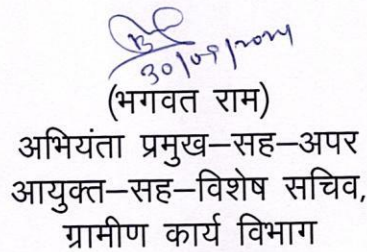 30/09/2024
(भगवत राम)
अभियंता प्रमुख–सह–अपर
आयुक्त–सह–विशेष सचिव,
ग्रामीण कार्य विभाग